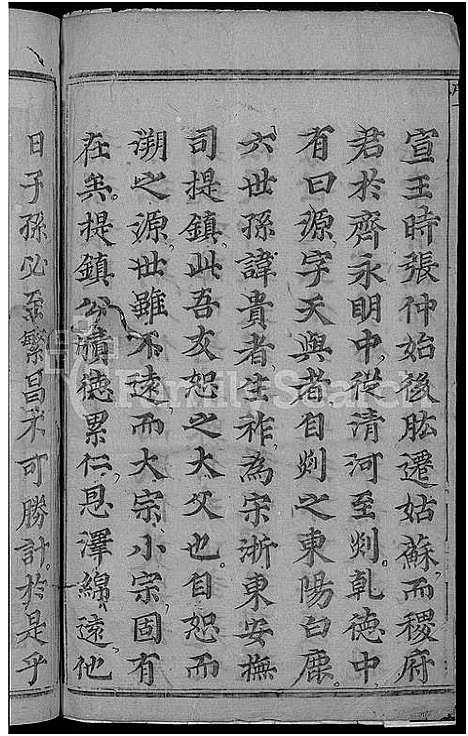 宣王時張仲始後肱遷姑蘇而稷府
君於齊永明中從清河至剡乾德中
有曰源字天與者自剡之東陽白鹿
六世孫諱貴者生祚為宋浙東安撫
司提鎮此吾友恕之大父也自恕而
溯之源世雖不遠而大宗小宗固有
在矣提鎮公積德累仁恩澤綿遠他
日子孫必至繁昌未可勝計於是乎
FamilySearch